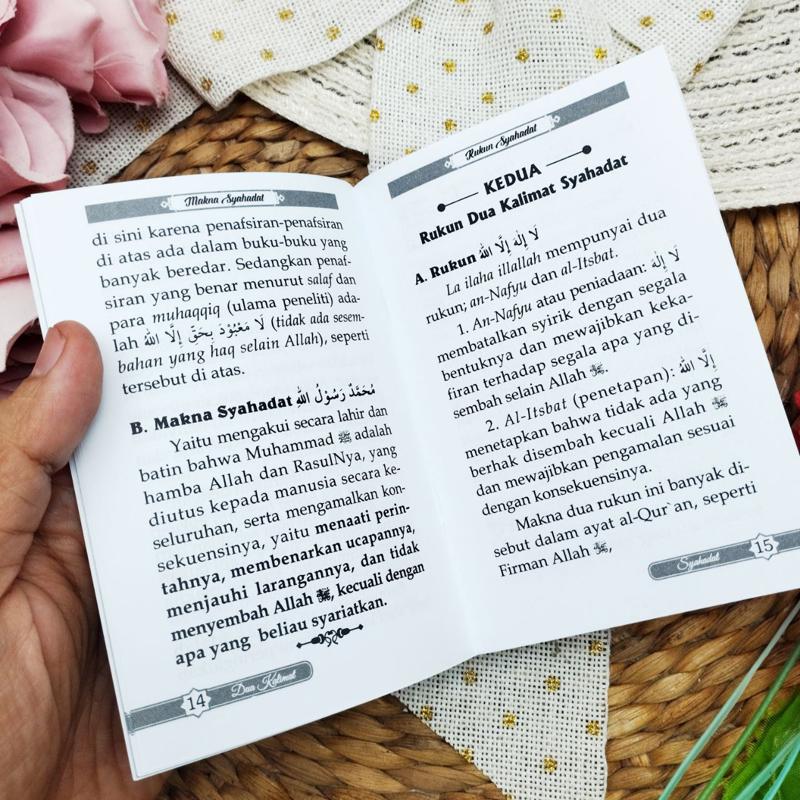 Makna Syahadat
di sini karena penafsiran-penafsiran
di atas ada dalam buku-buku yang
banyak beredar. Sedangkan penaf-
siran yang benar menurut salaf dan
para muhaqqiq (ulama peneliti) ada-
lah لَا مَعْبُوْدَ بِحَقٍّ إِلَّا اللهُ (tidak ada sesem-
bahan yang haq selain Allah), seperti
tersebut di atas.
B. Makna Syahadat مُحَمَّدٌ رَسُوْلُ اللهِ
Yaitu mengakui secara lahir dan
batin bahwa Muhammad ﷺ adalah
hamba Allah dan RasulNya, yang
diutus kepada manusia secara ke-
seluruhan, serta mengamalkan kon-
sekuensinya, yaitu menaati perin-
tahnya, membenarkan ucapannya,
menjauhi larangannya, dan tidak
menyembah Allah, kecuali dengan
apa yang beliau syariatkan.
14 Dua Kalimat
Rukun Syahadat
KEDUA
Rukun Dua Kalimat Syahadat
A. Rukun لَا إِلٰهَ إِلَّا اللهُ
La ilaha illallah mempunyai dua
rukun; an-Nafyu dan al-Itsbat.
1. An-Nafyu atau peniadaan: لَا إِلٰهَ
membatalkan syirik dengan segala
bentuknya dan mewajibkan keka-
firan terhadap segala apa yang di-
sembah selain Allah.
2. Al-Itsbat (penetapan): إِلَّا اللهُ
menetapkan bahwa tidak ada yang
berhak disembah kecuali Allah
dan mewajibkan pengamalan sesuai
dengan konsekuensinya.
Makna dua rukun ini banyak di-
sebut dalam ayat al-Qur`an, seperti
Firman Allah,
Syahadat 15